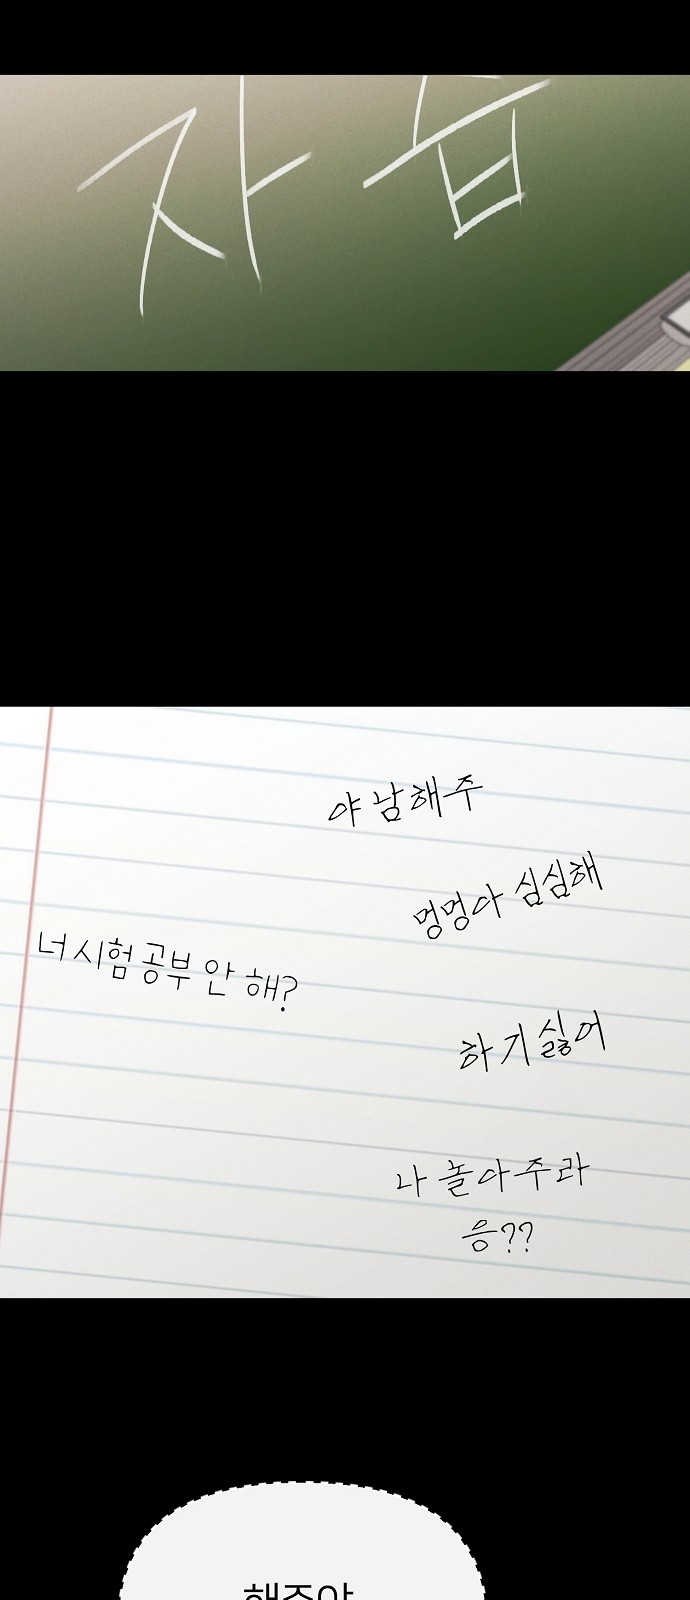 자습
야 남해주
멍멍아 심심해
너 시험 공부 안 해?
하기 싫어
나 놀아주라
응??
해주야